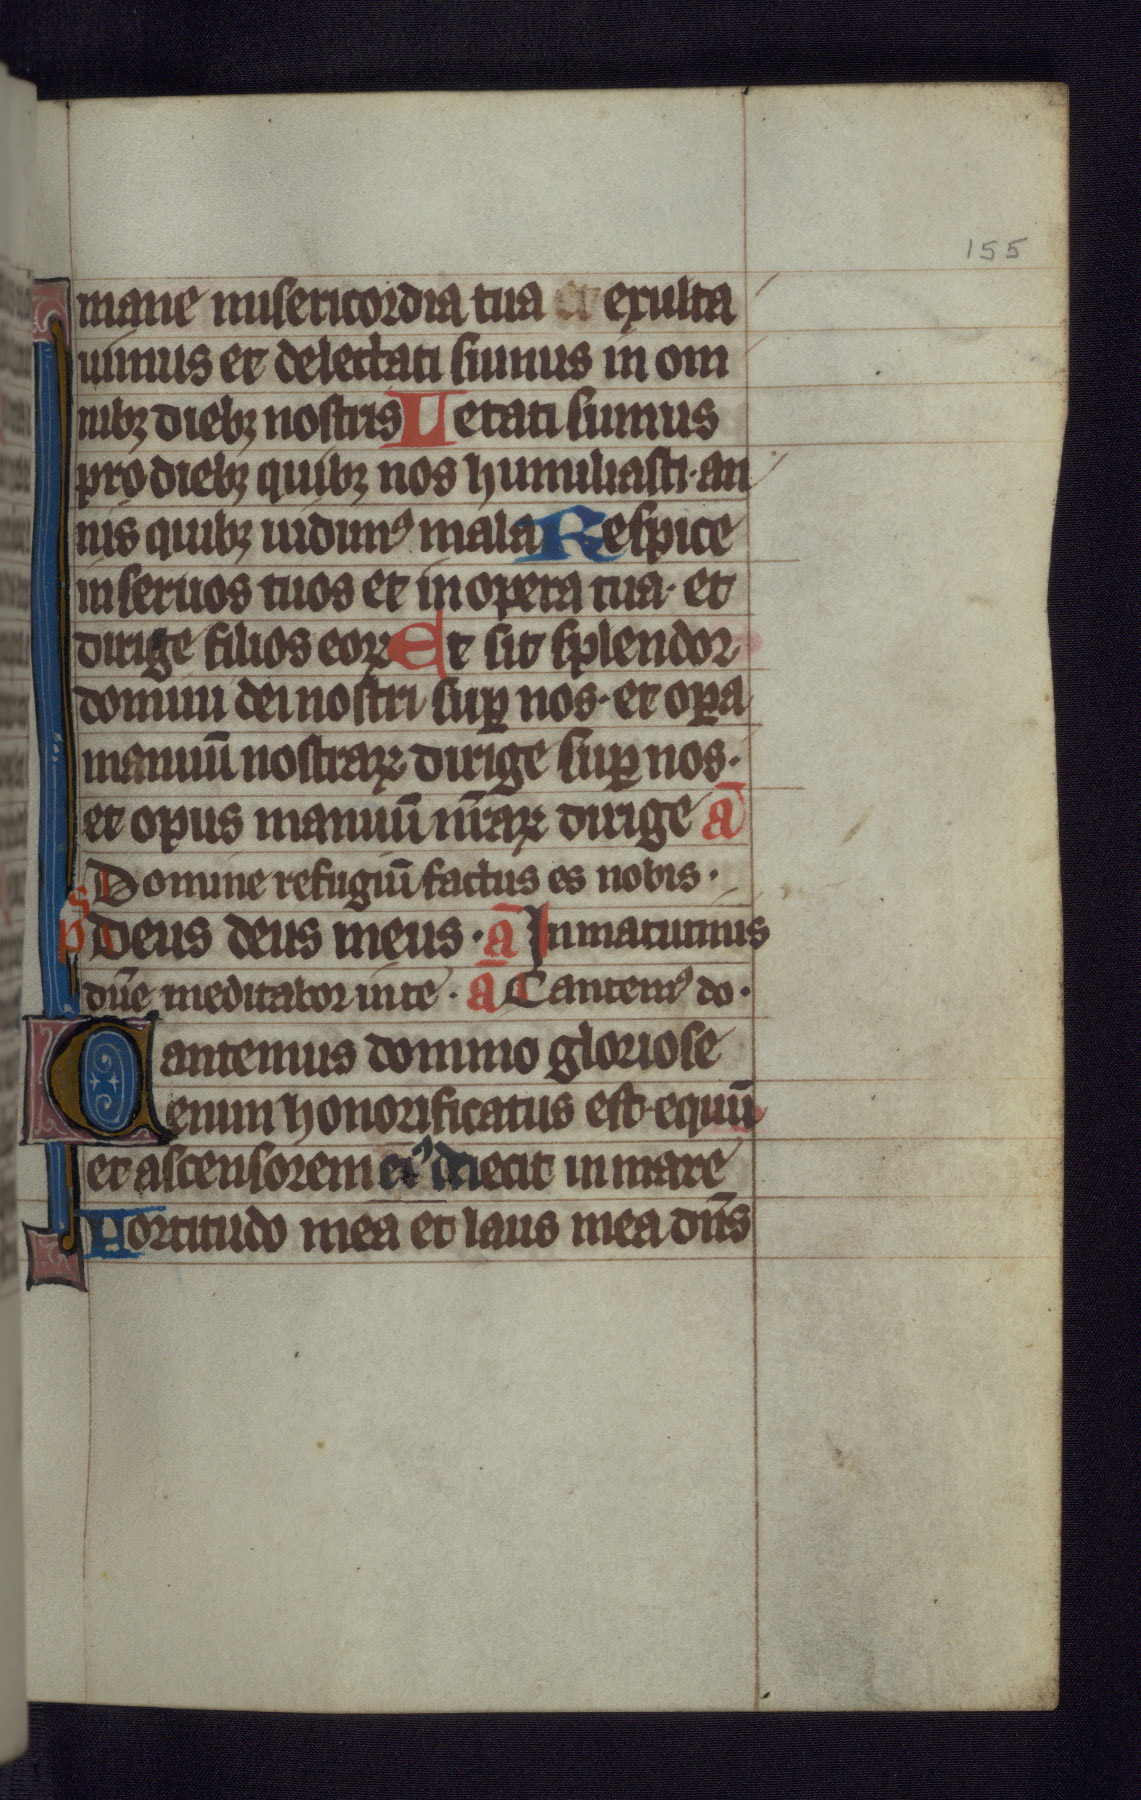 155
mane misericordia tua et exulta
uimus et delectati sumus in om
nibꝫ diebꝫ nostris Letati sumus
pro diebꝫ quibꝫ nos humiliasti · an
nis quibꝫ uidimꝰ mala Respice
in seruos tuos et in opera tua · et
dirige filios eoꝝ Et sit splendor
domini dei nostri suꝑ nos · et oꝑa
manuū nostraꝝ dirige suꝑ nos ·
et opus manuū nr̄aꝝ dirige a̅
Domine refugiū factus es nobis ·
ps Deus deus meus · a̅ In matutinis
dn̄e meditabor in te · a̅ Cantemꝰ do ·
Cantemus domino gloriose
enim honorificatus est · equū
et ascensorem eiꝰ deiecit in mare
Fortitudo mea et laus mea dn̄s